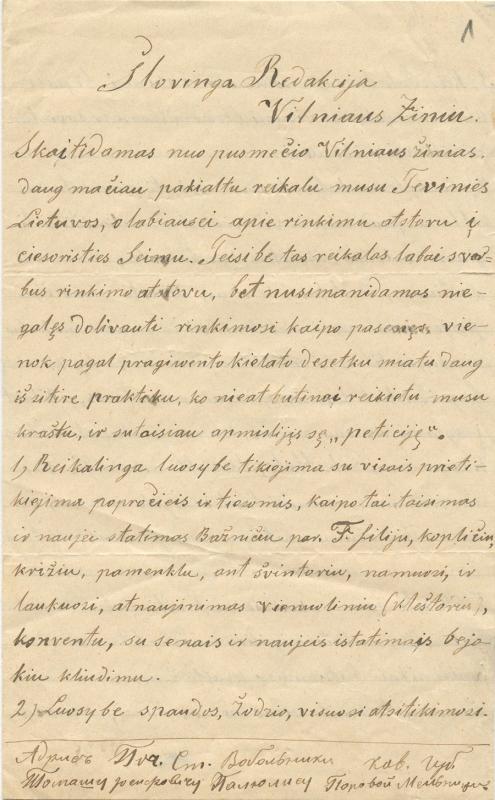 1
Šlovinga Redakcija
Vilniaus Žiniu.
Skaitidamas nuo pusmečio Vilniaus žinias.
daug mačiau pakialtu reikalu musu Tevinies
Lietuvos, o labiausei apie rinkimu atstovu į
ciesoristies Seimu. Teisibe tas reikalas labai svar=
bus rinkimo atstovu, bet nusimanidamas nie-
galęs dolivauti rinkimosi kaipo pasenęs, vie-
nok pagal pragiwento kielato desetku miatu daug
iš zitire praktiku, ko nieat butinai reikietu musu
kraštu, ir sutaisiau apmislijįs sę „peticiję".
1) Reikalinga luosybe tikiejima su visais prieti-
kiejima popročieis ir tiesomis, kaipo tai taisimas
ir naujei statimas Bažničiu par. F. filiju, kopličiu,
križiu, pamenklu, ant švintoriu, namuosi, ir
laukuosi, atnaujinimas vienuoliniu (kleštoriu),
konventu, su senais ir naujeis istatimais bejo-
kiu kliudimu.
2) Luosybe spaudos, žodžio, visuosi atsitikimosi.
Адрисъ Поч. Ст. Вобольники ков. губ
Томашу Юсефовичу Палюлису Паровой Мельницъ